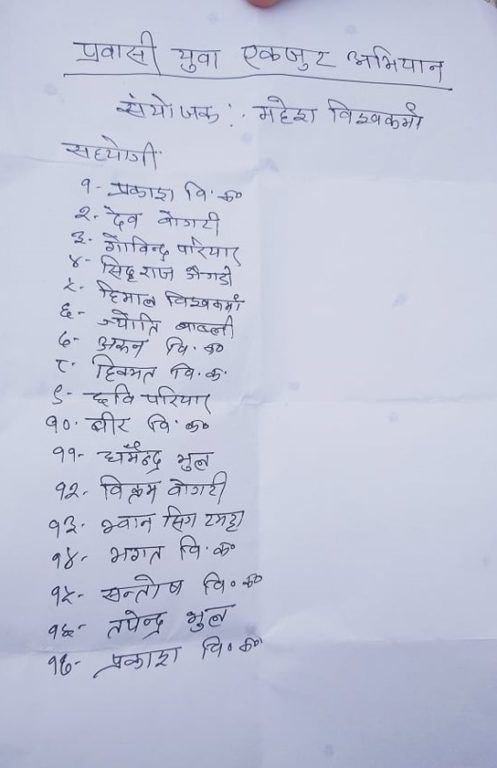 प्रवासी युवा एकजुट अभियान
संयोजक : महेश विश्वकर्मा
सहयोगी
१- प्रकाश वि॰ क॰
२- देव बोगटी
३- गोविन्द्र परियार
४- सिद्दराज जैगडी
५- हिमाल विश्वकर्मा
६- ज्योति
७- अर्कन वि॰ क॰
८- हिक्मत वि. क.
९- छवि परियार
१०- बीर वि॰ क॰
११- धर्मेन्द्र भुल
१२- विक्रम वोगटी
१३- भ्वान सिंग टमट्टा
१४- भगत वि॰ क॰
१५- सन्तोष वि॰ क॰
१६- तपेन्द्र भुल
१७- प्रकाश वि॰ क॰